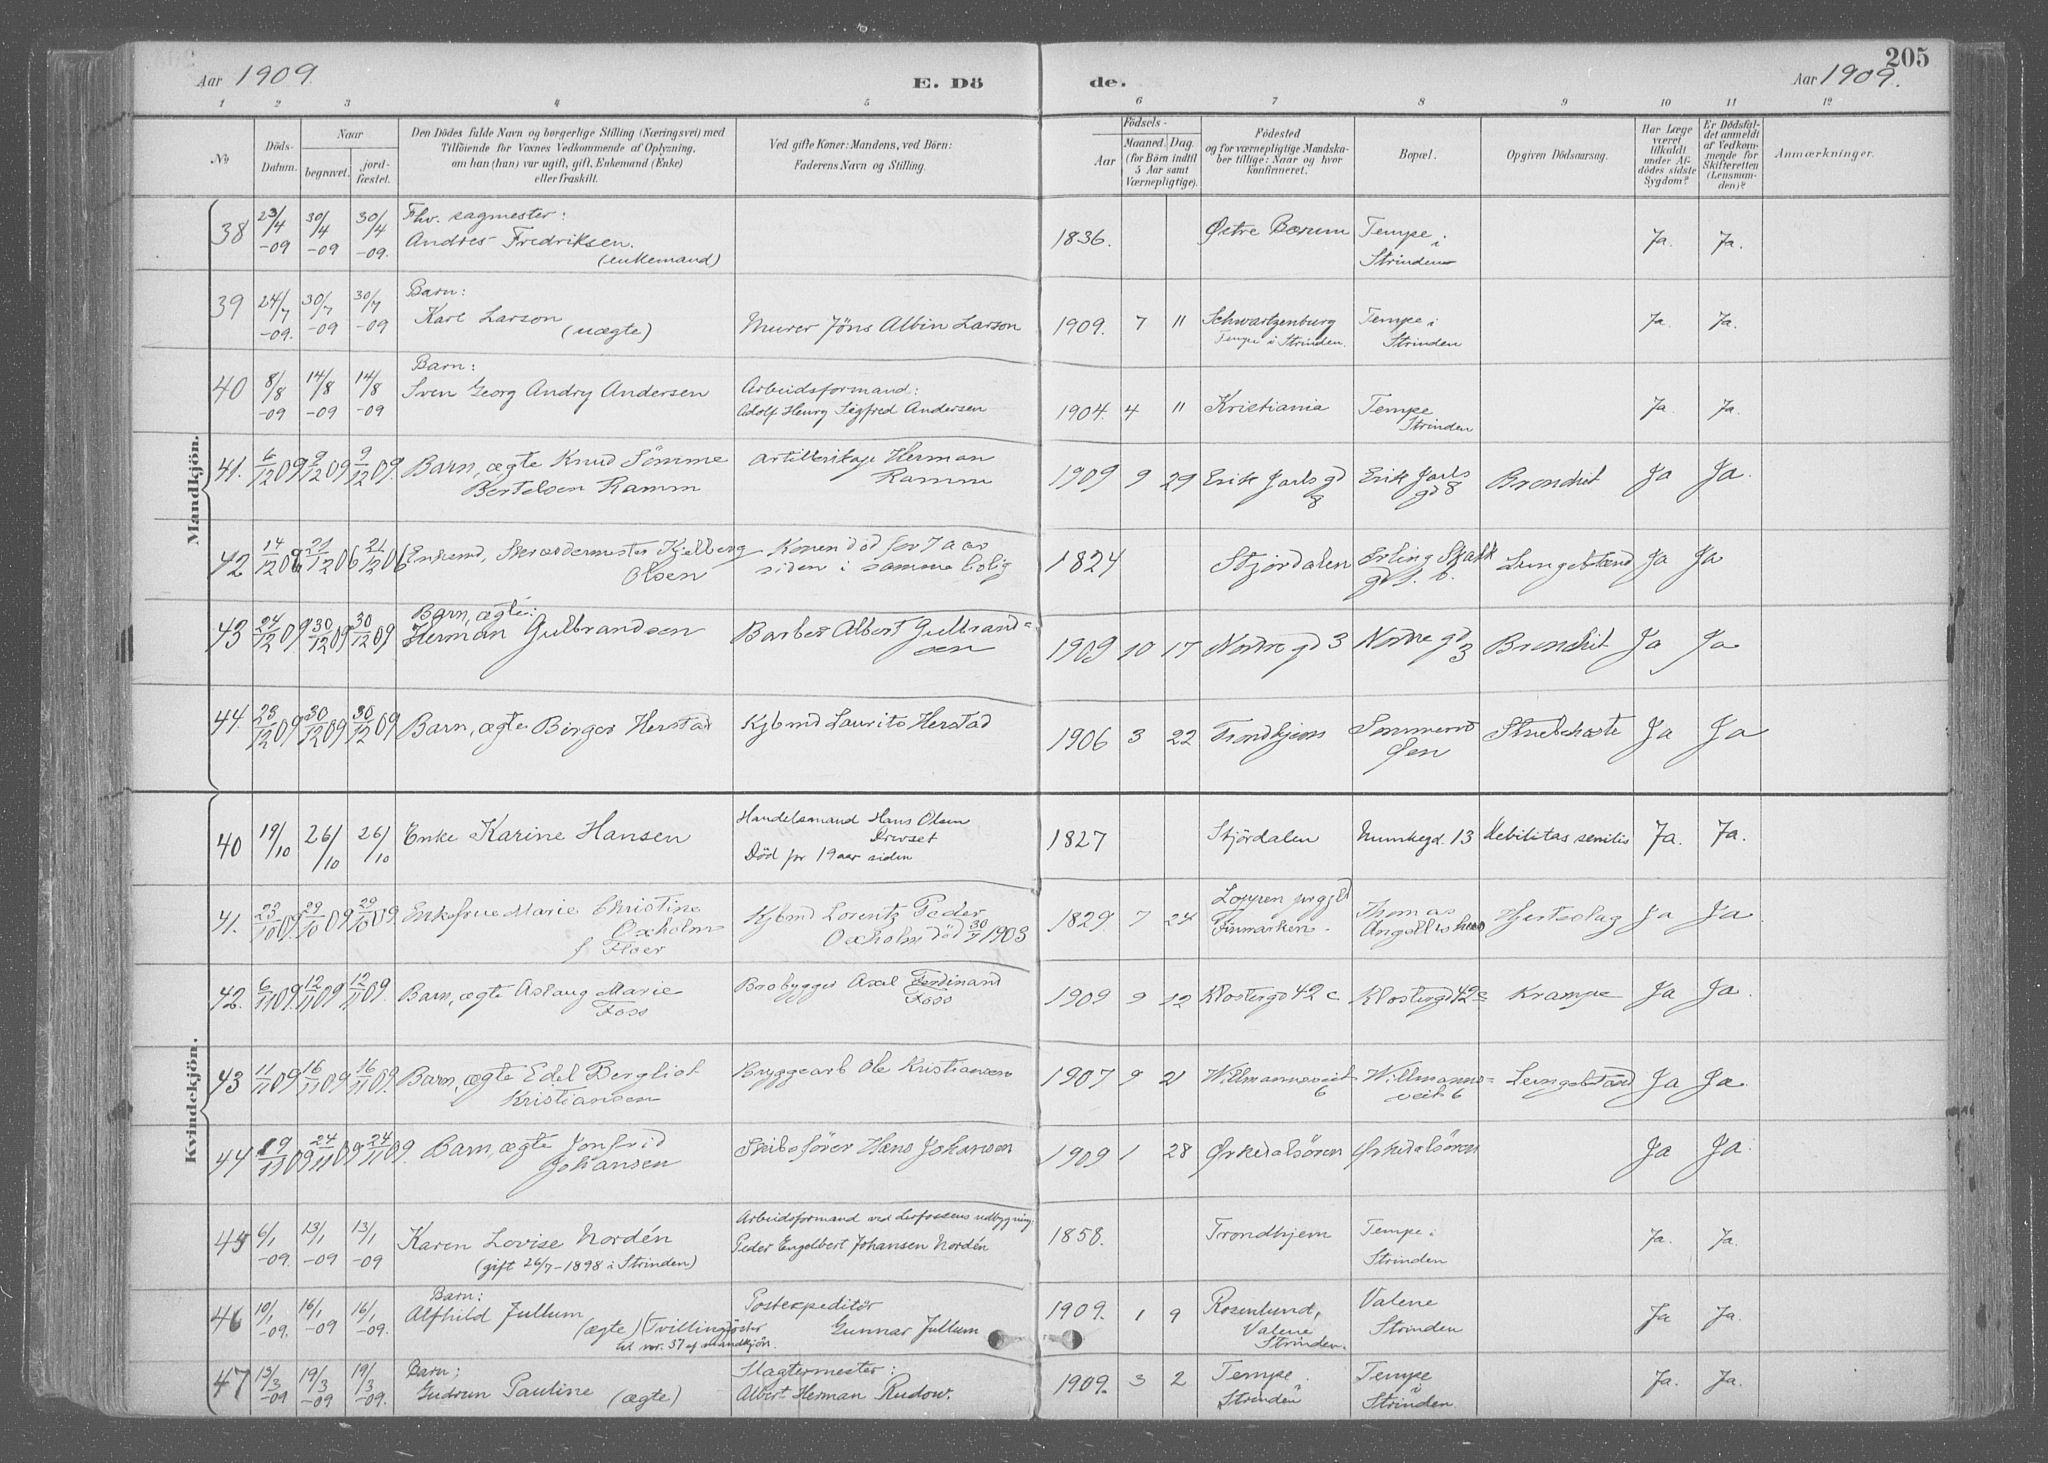 205
Aar 1909.
E. Dö
de.
Aar 1909.
1 2 3 4 5 6 7 8 9 10 11 12
No
Döds-Datum.
Naar
begravet.
jord-fæstet.
Den Dödes fulde Navn og borgerlige Stilling (Næringsvei) med
Tilföiende for Voxnes Vedkommende af Oplysning,
om han (hun) var ugift, gift, Enkemand (Enke)
eller fraskilt.
Ved gifte Koner: Mandens, ved Börn:
Faderens Navn og Stilling.
Födsels-
Aar
Maaned.
Dag.
(for Börn indtil
5 Aar samt
Værnepligtige).
Födested
og for værnepligtige Mandska-
ber tillige: Naar og hvor
konfirmeret.
Bopæl.
Opgiven Dödsaarsag.
Har Læge
været
tilkaldt
under Af-
dödes sidste
Sygdom?
Er Dödsfal-
det anmeldt
af Vedkom-
mende for
Skifteretten
(Lensman-
den)?
Anmærkninger.
Mandkjön.
38 23/4 -09 30/4 -09 30/4 -09. Fhv. sagmester:
Andres Fredriksen.
(enkemand)
1836. Østre Bærum Tempe i
Strinden Ja. Ja.
39 24/7 -09. 30/7 -09 30/7 -09 Barn:
Karl Larson
(uægte) Murer Jöns Albin Larson 1909. 7 11 Schwartzenburg
Tempe i Strinden. Tempe i
Strinden Ja. Ja.
40 8/8 -09 14/8 -09 14/8 -09 Barn:
Sven Georg Andry Andersen Arbeidsformand:
Adolf Henry Sigfred Andersen 1904. 4 11 Kristiania Tempe
Strinden Ja. Ja.
41. 6/12 09 9/12 09 9/12 09. Barn, ægte Knud Sömme
Bertelsen Ramm Herman
Ramm 1909 9 29 Erik Jarls gd
8 Erik Jarls
gd 8 Bronchit Ja Ja.
42 14/12 09 21/12 06 21/12 06 Enkemd, Kjelberg
Olsen Konen död for 7 aar
siden i samme bolig 1824 Stjördalen Erling Skakk
gd Lungebetænd Ja Ja
43 24/12 09 30/12 09 30/12 09 Barn, ægte:
Herman Gulbrandsen Barber Albert Gulbrand=
sen 1909 10 17 Nordre gd 3 Nordre gd
3 Bronchit Ja Ja
44. 23/12 09 30/12 09 30/12 09 Barn, ægte Birger Herstad Kjbmd Laurits Herstad 1906 3 22 Trondhjem Sommerv
Øen Ja Ja
Kvindekjön.
40 19/10 26/10 26/10 Enke Karine Hansen Handelsmand Hans Olsen
Död for 19 aar siden 1827 Stjördalen Munkegd. 13 Debilitas senilis Ja. Ja.
41. 23/10 09. 29/10 09 29/10 09. Enkefrue Marie Christine
Oxholm
f Floer Kjbmd Lorentz Peder
Oxholm död 30/9 1903 1829. 7 24 Loppen prgjld
Finmarken. Thomas
Angells hus Hjerteslag Ja Ja
42. 6/11 09. 12/11 09 12/11 09. Barn, ægte Aslaug Marie
Foss Brobygger Axel Ferdinand
Foss 1909 9 12 Klostergd 42 c Klostergd 42 c Krampe Ja Ja.
43 11/11 09 16/11 09 16/11 09. Barn, ægte Edel Bergliot
Kristiansen Bryggearb Ole Kristiansen 1907 9 21 Willmannsveit
6 Willmanns=
veit 6 Lungebetænd Ja Ja.
44 19/11 09 24/11 09 24/11 09. Barn, ægte Jonfrid
Johansen Skibsförer Hans Johansen 1909 1 28 Ørkedalsören Ørkedalsören Ja Ja.
45 6/1 -09. 13/1 -09 13/1 -09 Karen Lovise Nordén
(gift 26/7 - 1898 i Strinden) Arbeidsformand ved Lerfossens udbygning:
Peder Engelbert Johansen Nordén 1858. Trondhjem Tempe i
Strinden Ja. Ja.
46 10/1 -09. 16/1 -09 16/1 -09. Barn:
Alfhild Jullum
(ægte) (Tvillingsöster
til nr. 37 af mandkjön. Postexpeditör
Gunnar Jullum 1909. 1 9 Rosenlund,
Valene
Strinden. Valene
Strinden Ja Ja.
47 13/3 -09 19/3 -09 19/3 -09. Barn:
Gudrun Pauline (ægte) Slagtermester:
Albert Herman Rudow. 1909. 3 2 Tempe i
Strinden Tempe i
Strinden Ja. Ja.